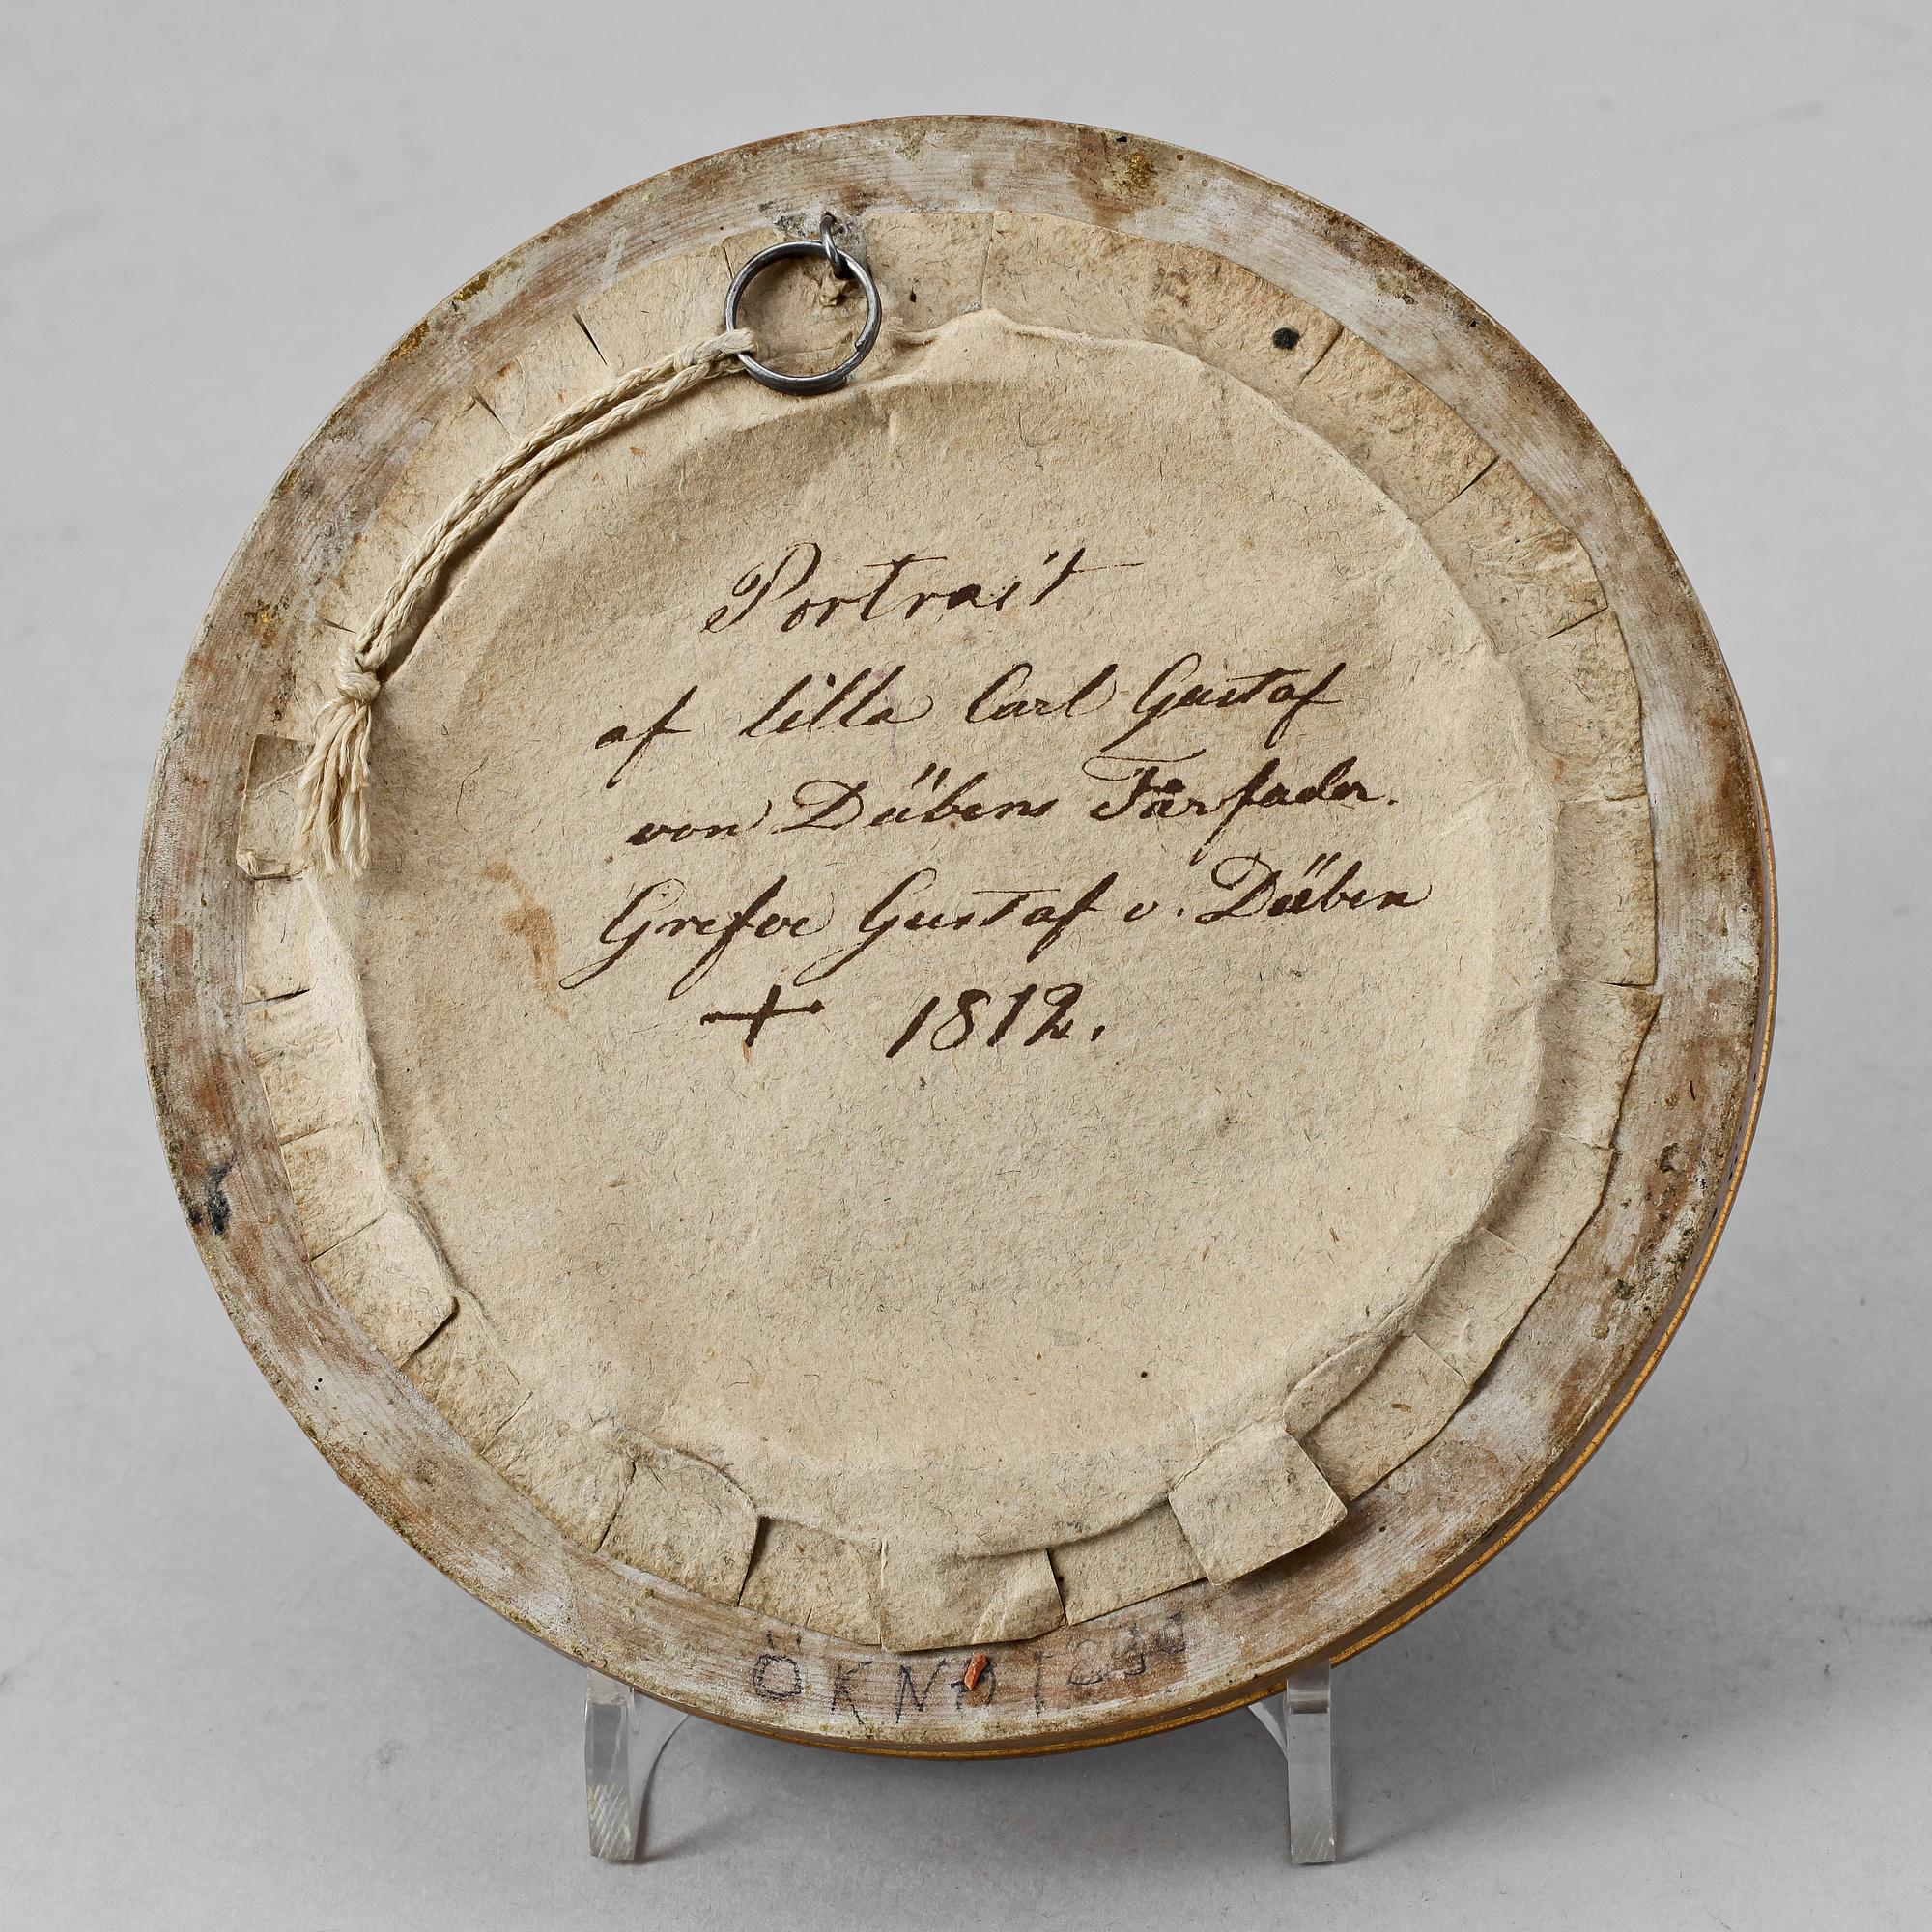 Portrait
af lilla Carl Gustaf
von Dübens Farfader.
Grefve Gustaf v. Düben
+ 1812.
ÖKM